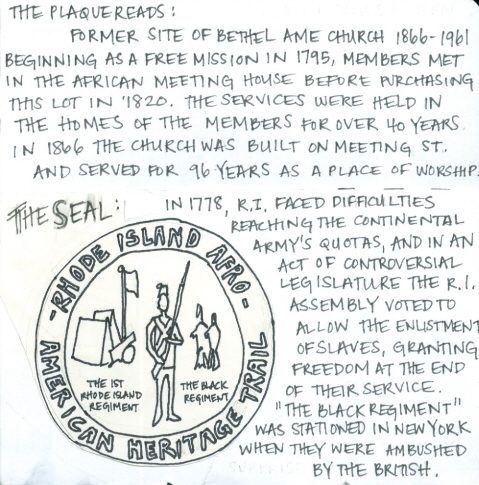 THE PLAQUE READS:
FORMER SITE OF BETHEL AME CHURCH 1866-1961
BEGINNING AS A FREE MISSION IN 1795, MEMBERS MET
IN THE AFRICAN MEETING HOUSE BEFORE PURCHASING
THIS LOT IN '1820. THE SERVICES WERE HELD IN
THE HOMES OF THE MEMBERS FOR OVER 40 YEARS.
IN 1866 THE CHURCH WAS BUILT ON MEETING ST.
AND SERVED FOR 96 YEARS AS A PLACE OF WORSHIP.
THE SEAL:
IN 1778, R.I. FACED DIFFICULTIES
REACHING THE CONTINENTAL
ARMY'S QUOTAS, AND IN AN
ACT OF CONTROVERSIAL
LEGISLATURE THE R.I.
ASSEMBLY VOTED TO
ALLOW THE ENLISTMENT
OF SLAVES, GRANTING
FREEDOM AT THE END
OF THEIR SERVICE.
"THE BLACK REGIMENT"
WAS STATIONED IN NEW YORK
WHEN THEY WERE AMBUSHED
BY THE BRITISH.
- RHODE ISLAND AFRO -
AMERICAN HERITAGE TRAIL
THE 1ST
RHODE ISLAND
REGIMENT
THE BLACK
REGIMENT